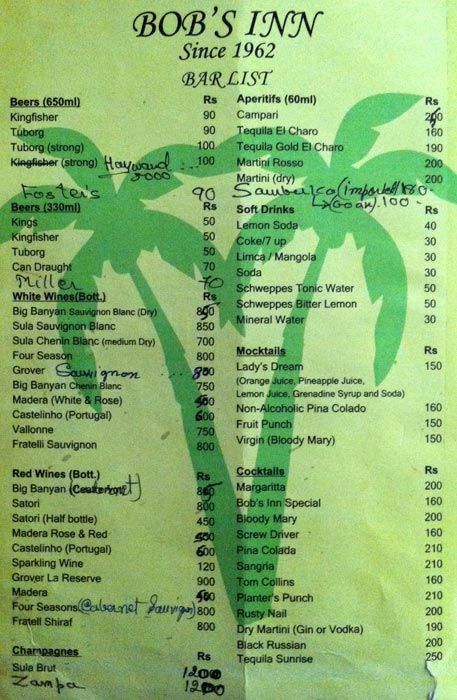 BOB'S INN
Since 1962
BAR LIST
Beers (650ml) Rs
Kingfisher 90
Tuborg 90
Tuborg (strong) 100
Kingfisher (strong) Hayward 2000 100
Foster's 90
Beers (330ml) Rs
Kings 50
Kingfisher 50
Tuborg 50
Can Draught 70
Miller 70
White Wines(Bott.) Rs
Big Banyan Sauvignon Blanc (Dry)
Sula Sauvignon Blanc 850
Sula Chenin Blanc (medium Dry) 700
Four Season 800
Grover Sauvignon
Big Banyan Chenin Blanc 750
Madera (White & Rose)
Castelinho (Portugal) 600
Vallonne 750
Fratelli Sauvignon 800
Red Wines (Bott.) Rs
Big Banyan (Cabernet)
Satori 800
Satori (Half bottle) 450
Madera Rose & Red
Castelinho (Portugal) 600
Sparkling Wine 120
Grover La Reserve 900
Madera
Four Seasons (Cabernet Sauvignon) 800
Fratell Shiraf 800
Champagnes Rs
Sula Brut 1200
Zampa 1200
Aperitifs (60ml) Rs
Campari
Tequila El Charo 160
Tequila Gold El Charo 190
Martini Rosso 200
Martini (dry) 200
Sambuica (imported) 180-
→ (Goan) 100-
Soft Drinks Rs
Lemon Soda 40
Coke/7 up 30
Limca / Mangola 30
Soda 30
Schweppes Tonic Water 50
Schweppes Bitter Lemon 50
Mineral Water 30
Mocktails Rs
Lady's Dream 150
(Orange Juice, Pineapple Juice,
Lemon Juice, Grenadine Syrup and Soda)
Non-Alcoholic Pina Colado 160
Fruit Punch 150
Virgin (Bloody Mary) 150
Cocktails Rs
Margaritta 200
Bob's Inn Special 160
Bloody Mary 200
Screw Driver 160
Pina Colada 210
Sangria 210
Tom Collins 160
Planter's Punch 210
Rusty Nail 200
Dry Martini (Gin or Vodka) 190
Black Russian 200
Tequila Sunrise 250